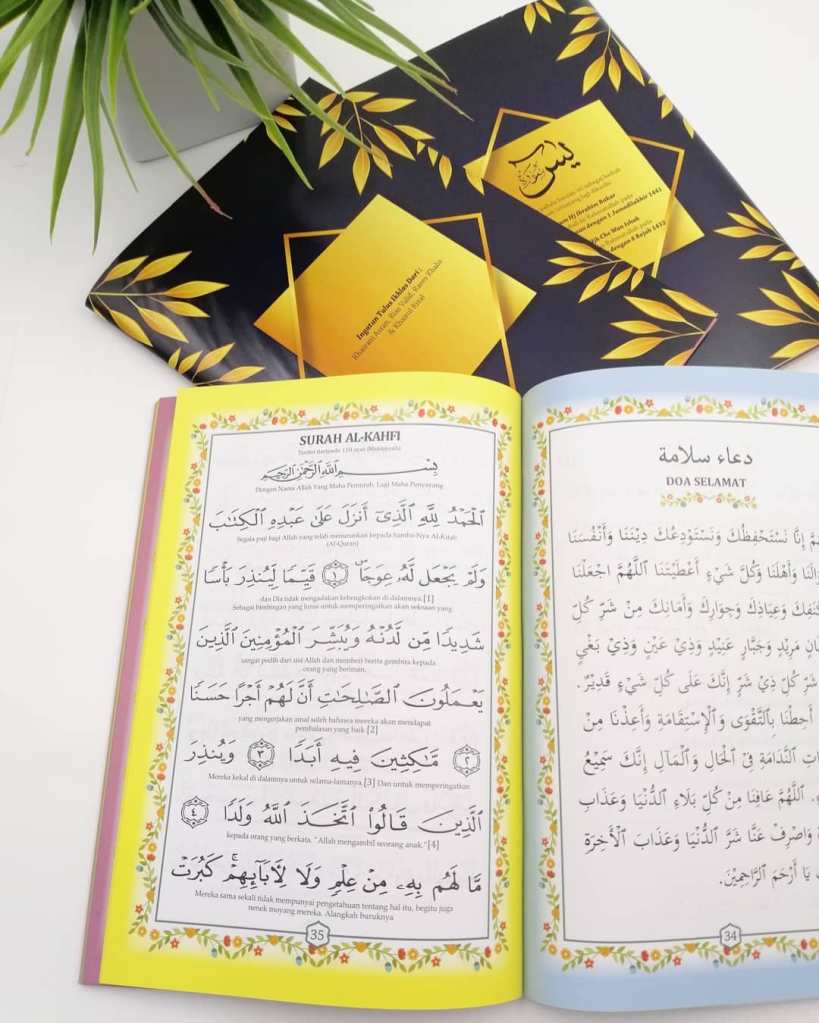 يس
Hj Ibrahim Bakar
dengan 1 Jamadilakhir 1441
Che Wan Jahah
dengan 8 Rejab 1432
Ingatan Tulus Ikhlas Dari :
SURAH AL-KAHFI
بِسْمِ ٱللَّهِ ٱلرَّحْمَٰنِ ٱلرَّحِيمِ
Dengan Nama Allah Yang Maha Pemurah, Lagi Maha Penyayang
ٱلْحَمْدُ لِلَّهِ ٱلَّذِىٓ أَنزَلَ عَلَىٰ عَبْدِهِ ٱلْكِتَٰبَ
Segala puji bagi Allah yang telah menurunkan kepada hamba-Nya Al-Kitab
(Al-Quran)
وَلَمْ يَجْعَل لَّهُۥ عِوَجَاۜ ١ قَيِّمًا لِّيُنذِرَ بَأْسًا
dan Dia tidak mengadakan kebengkokan di dalamnya.[1]
Sebagai bimbingan yang lurus untuk memperingatkan akan seksaan yang
شَدِيدًا مِّن لَّدُنْهُ وَيُبَشِّرَ ٱلْمُؤْمِنِينَ ٱلَّذِينَ
sangat pedih dari sisi Allah dan memberi berita gembira kepada
orang yang beriman,
يَعْمَلُونَ ٱلصَّٰلِحَٰتِ أَنَّ لَهُمْ أَجْرًا حَسَنًا
yang mengerjakan amal saleh bahawa mereka akan mendapat
pembalasan yang baik [2]
٢ مَّٰكِثِينَ فِيهِ أَبَدًا ٣ وَيُنذِرَ
Mereka kekal di dalamnya untuk selama-lamanya.[3] Dan untuk memperingatkan
ٱلَّذِينَ قَالُوا۟ ٱتَّخَذَ ٱللَّهُ وَلَدًا ٤
kepada orang yang berkata, "Allah mengambil seorang anak."[4]
مَّا لَهُم بِهِۦ مِنْ عِلْمٍ وَلَا لِءَابَآئِهِمْ ۚ كَبُرَتْ
Mereka sama sekali tidak mempunyai pengetahuan tentang hal itu, begitu juga
nenek moyang mereka. Alangkah buruknya
35
دعاء سلامة
DOA SELAMAT
إِنَّا نَسْتَحْفِظُكَ وَنَسْتَوْدِعُكَ دِيْنَنَا وَأَنْفُسَنَا
وَأَهْلَنَا وَكُلَّ شَيْءٍ أَعْطَيْتَنَا اَللَّهُمَّ اجْعَلْنَا
وَعِيَاذِكَ وَجِوَارِكَ وَأَمَانِكَ مِنْ شَرِّ كُلِّ
مَرِيْدٍ وَجَبَّارٍ عَنِيْدٍ وَذِيْ عَيْنٍ وَذِيْ بَغْيٍ
شَرِّ كُلِّ ذِيْ شَرٍّ إِنَّكَ عَلَى كُلِّ شَيْءٍ قَدِيْرٌ.
أَحِطْنَا بِالتَّقْوَى وَالْإِسْتِقَامَةِ وَأَعِذْنَا مِنْ
النَّدَامَةِ فِى الْحَالِ وَالْمَآلِ إِنَّكَ سَمِيْعُ
اَللَّهُمَّ عَافِنَا مِنْ كُلِّ بَلَاءِ الدُّنْيَا وَعَذَابِ
وَاصْرِفْ عَنَّا شَرَّ الدُّنْيَا وَعَذَابَ الْأَخِرَةِ
يَا أَرْحَمَ الرَّاحِمِيْنَ.
34